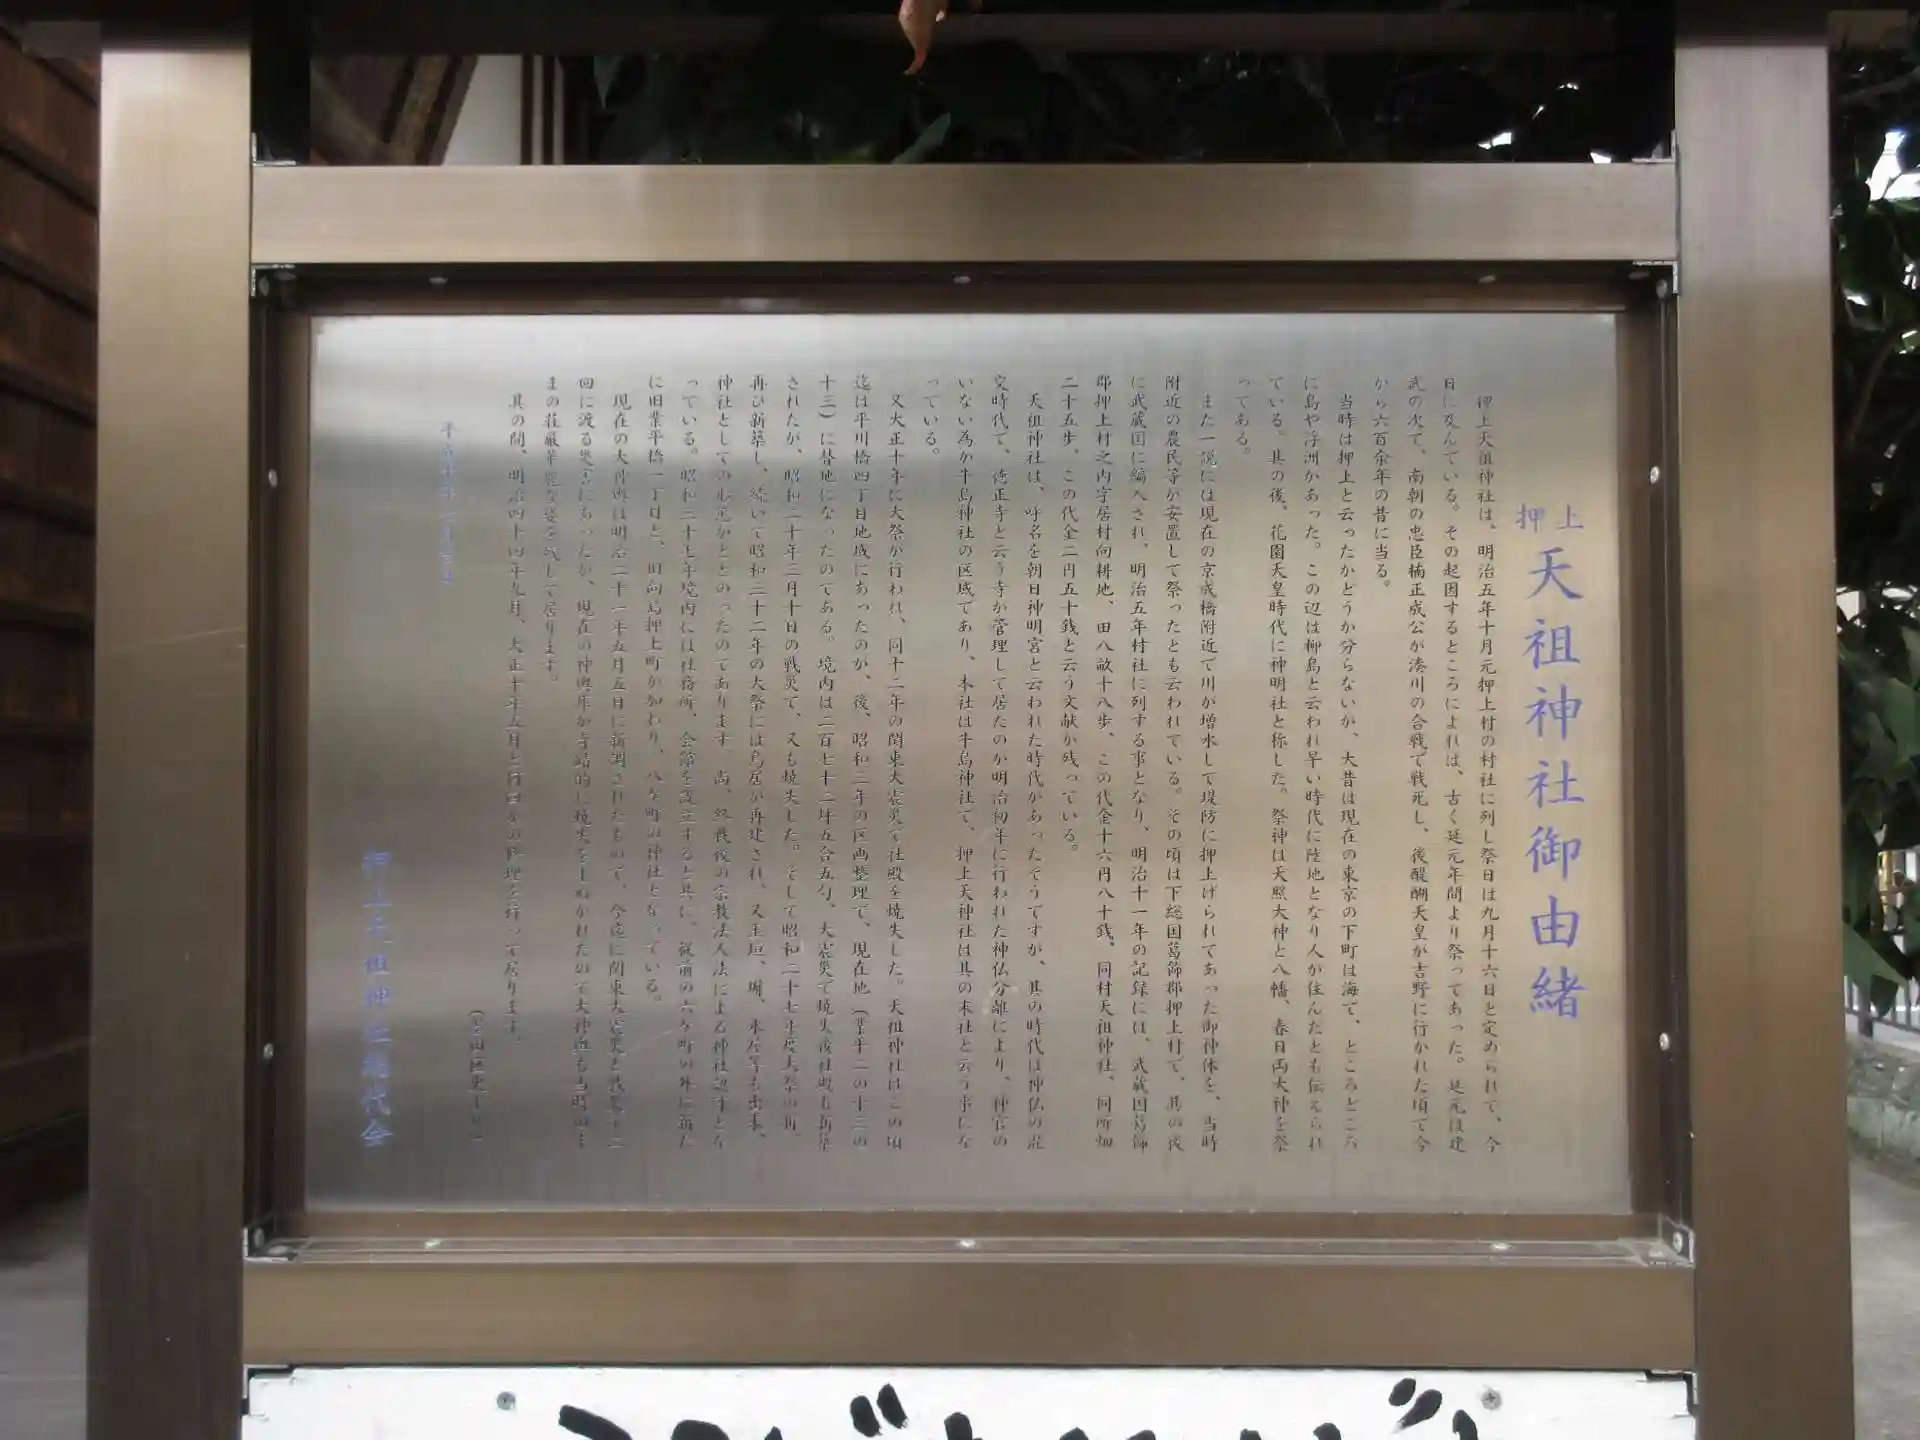 押上 天祖神社御由緒
押上天祖神社は、明治五年十月元押上村の村社に列し祭日は九月十六日と定められて、今
日に及んでいる。その起因するところによれば、古く延元年間より祭ってあった。延元は建
武の次で、南朝の忠臣楠正成公が湊川の合戦で戦死し、後醍醐天皇が吉野に行かれた頃で今
から六百余年の昔に当る。
当時は押上と云ったかどうか分らないが、大昔は現在の東京の下町は海で、ところどころ
に島や浮洲があった。この辺は柳島と云われ早い時代に陸地となり人が住んだとも伝えられ
ている。其の後、花園天皇時代に神明社と称した。祭神は天照大神と八幡、春日両大神を祭
ってある。
また一説には現在の京成橋附近で川が増水して堤防に押上げられてあった御神体を、当時
附近の農民等が安置して祭ったとも云われている。その頃は下総国葛飾郡押上村で、其の後
に武蔵国に編入され、明治五年村社に列する事となり、明治十一年の記録には、武蔵国葛飾
郡押上村之内字居村向耕地、田八畝十八歩、この代金十六円八十銭、同村天祖神社、同所畑
二十五歩、この代金二円五十銭と云う文献が残っている。
天祖神社は、呼名を朝日神明宮と云われた時代があったそうですが、其の時代は神仏の混
交時代で、徳正寺と云う寺が管理して居たのが明治初年に行われた神仏分離により、神官の
いない為か牛島神社の区域であり、本社は牛島神社で、押上天神社は其の末社と云う事にな
っている。
又大正十年に大祭が行われ、同十二年の関東大震災で社殿を焼失した。天祖神社はこの頃
迄は平川橋四丁目地域にあったのが、後、昭和三年の区画整理で、現在地（業平二の十三の
十三）に替地になったのである。境内は二百七十二坪五合五勺、大震災で焼失後社殿も新築
されたが、昭和二十年三月十日の戦災で、又も焼失した。そして昭和二十七年度大祭の折、
再び新築し、続いて昭和三十二年の大祭には鳥居が再建され、又玉垣、塀、水屋等も出来、
神社としての形態がととのったのであります。尚、終戦後の宗教法人法による神社認可とな
っている。昭和三十七年境内には社務所、会館を設立すると共に、従前の六ヶ町の外に新た
に旧業平橋一丁目と、旧向島押上町が加わり、八ヶ町の神社となっている。
現在の大神輿は明治二十一年五月五日に新調されたもので、今迄に関東大震災と戦災と二
回に渡る災害にあったが、現在の神輿庫が奇蹟的に焼失をまぬかれたので大神輿も当時のま
まの荘厳華麗な姿を残して居ります。
其の間、明治四十四年九月、大正十年五月と何回かの修理を行って居ります。
（墨田区史より）
押上天祖神社総代会